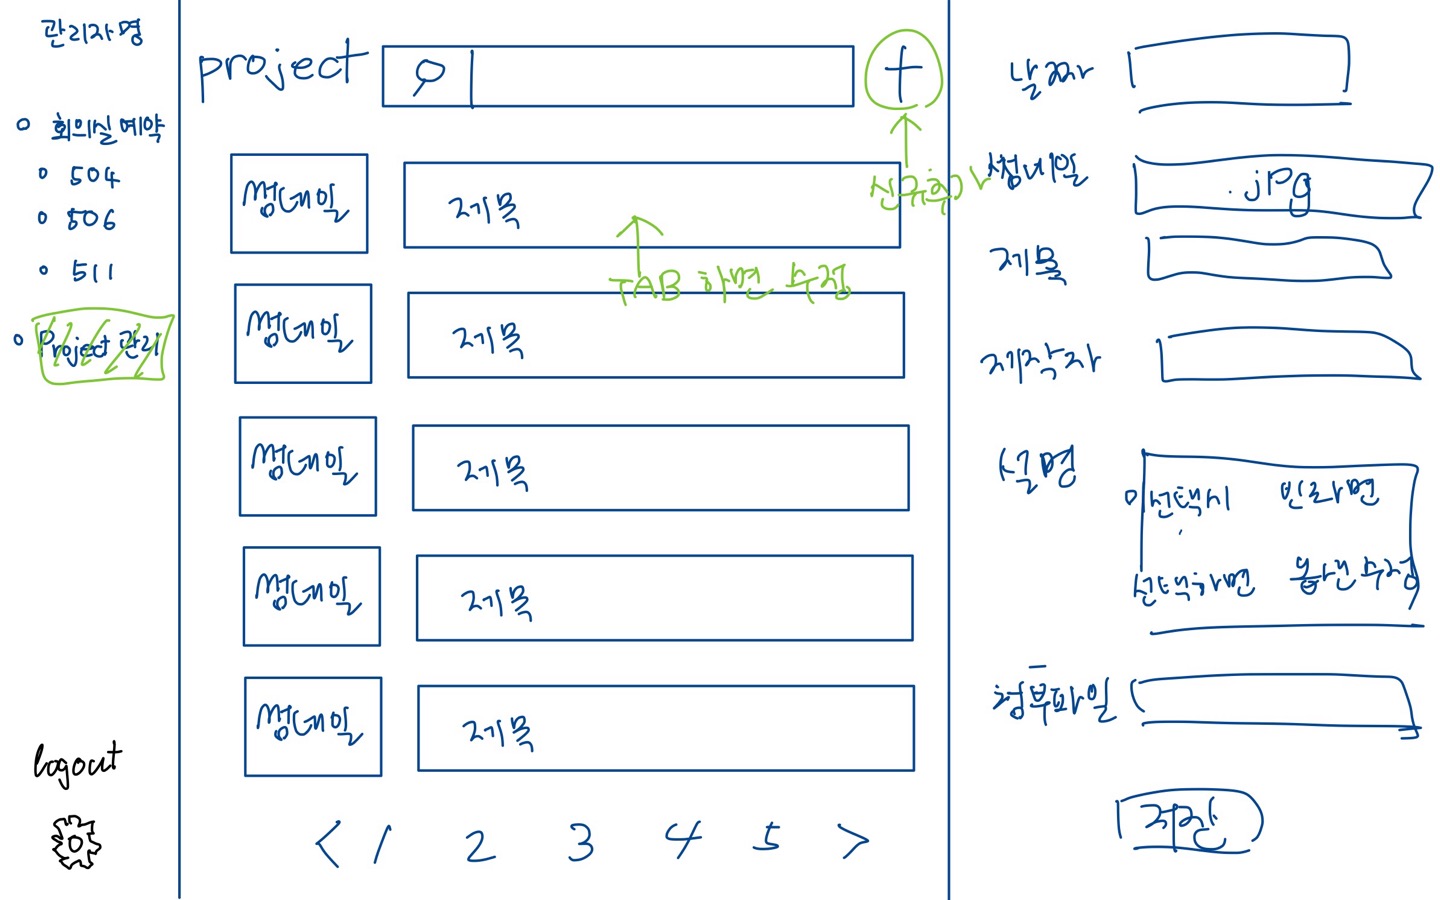 관리자명
회의실 예약
504
506
511
Project 관리
logout
project
신규추가
썸네일 제목
TAB 하면 수정
썸네일 제목
썸네일 제목
썸네일 제목
썸네일 제목
< 1 2 3 4 5 >
날짜
썸네일 .jpg
제목
제작자
설명
미선택시 빈화면
선택하면 불러온 수정
첨부파일
저장